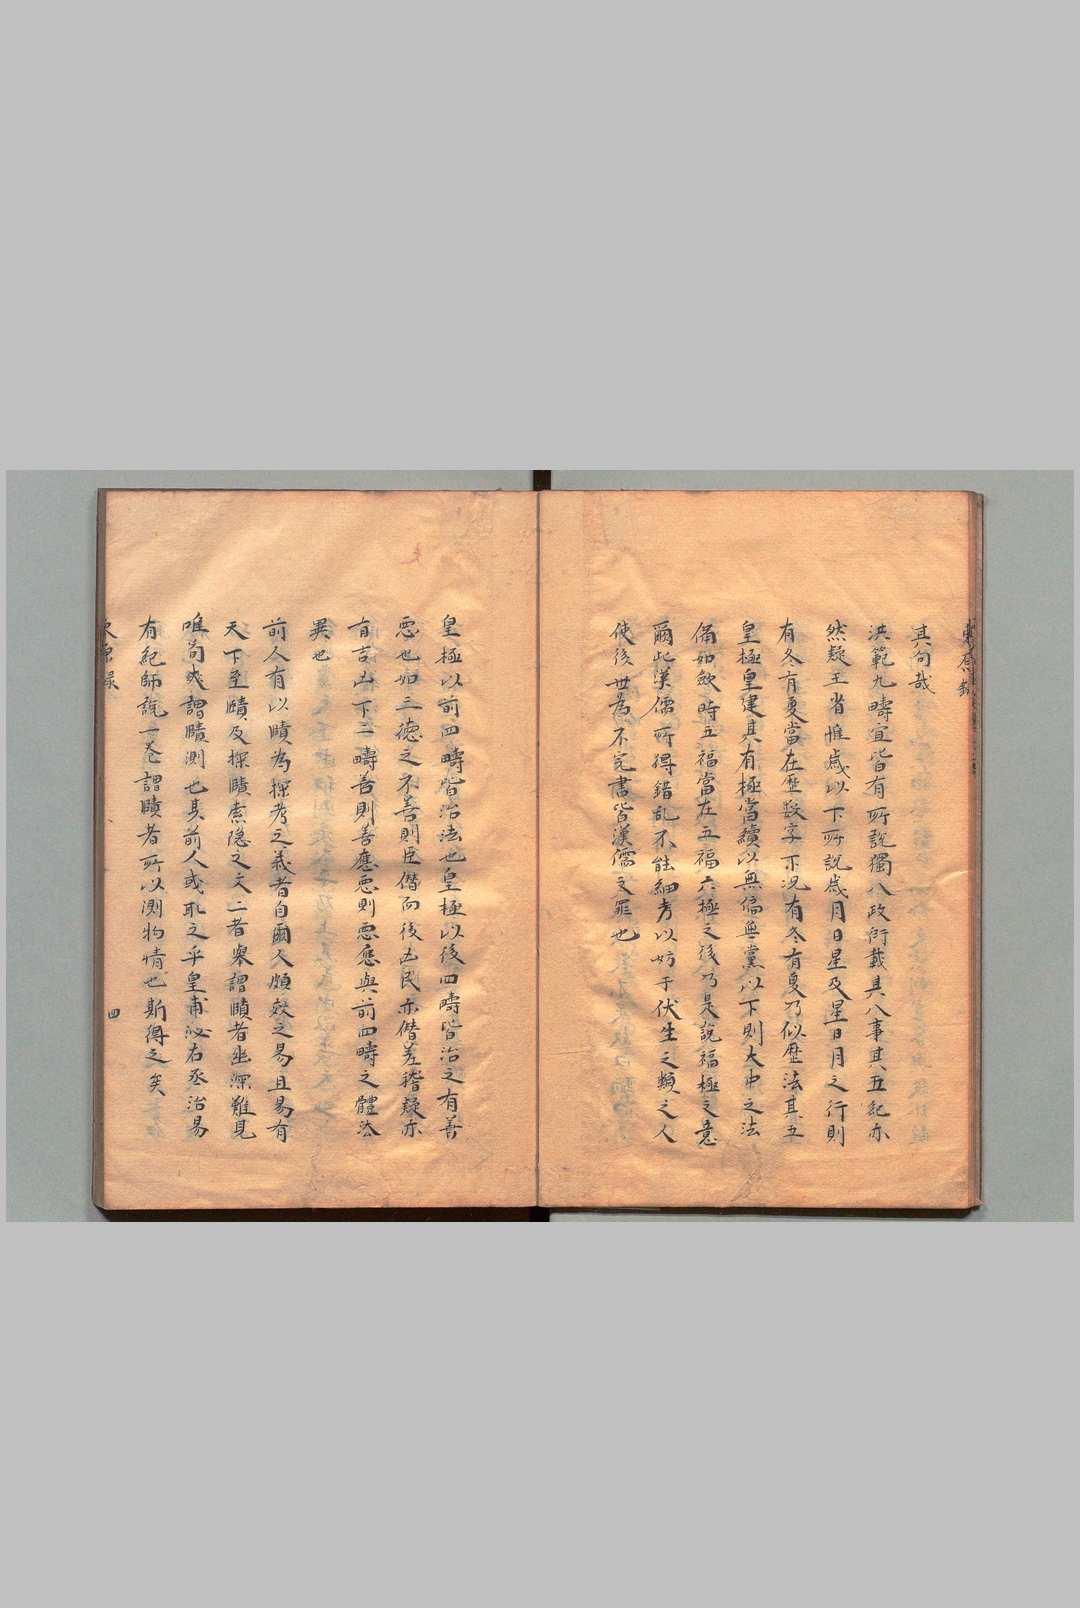 其句哉
洪範九疇宜皆有所説獨八政衍載其八事其五紀亦
然疑王省惟歲以下所説歲月日星及星日月之行則
有冬有夏當在歴數字下況有冬有夏乃似歴法其五
皇極皇建其有極當續以無偏無黨以下則大中之法
備如斂時五福當在五福六極之後乃是説福極之意
爾此漢儒所得錯乱不能細考以妨于伏生之類之人
使後世為不完書皆漢儒之罪也
皇極以前四疇皆治法也皇極以後四疇皆治之有善
悪也如三德之不善則臣僭而後凶民亦僭差稽疑亦
有吉凶下二疇善則善應悪則悪應與前四疇之體法
異也
前人有以賾為探考之義者自爾人頗效之易且易有
天下至賾及探賾索隐之文二者舉謂賾者幽深難見
唯荀爽謂賾測也其前人或取之乎皇甫泌右丞治易
有紀師説一巻謂賾者所以測物情也斯得之矣
四